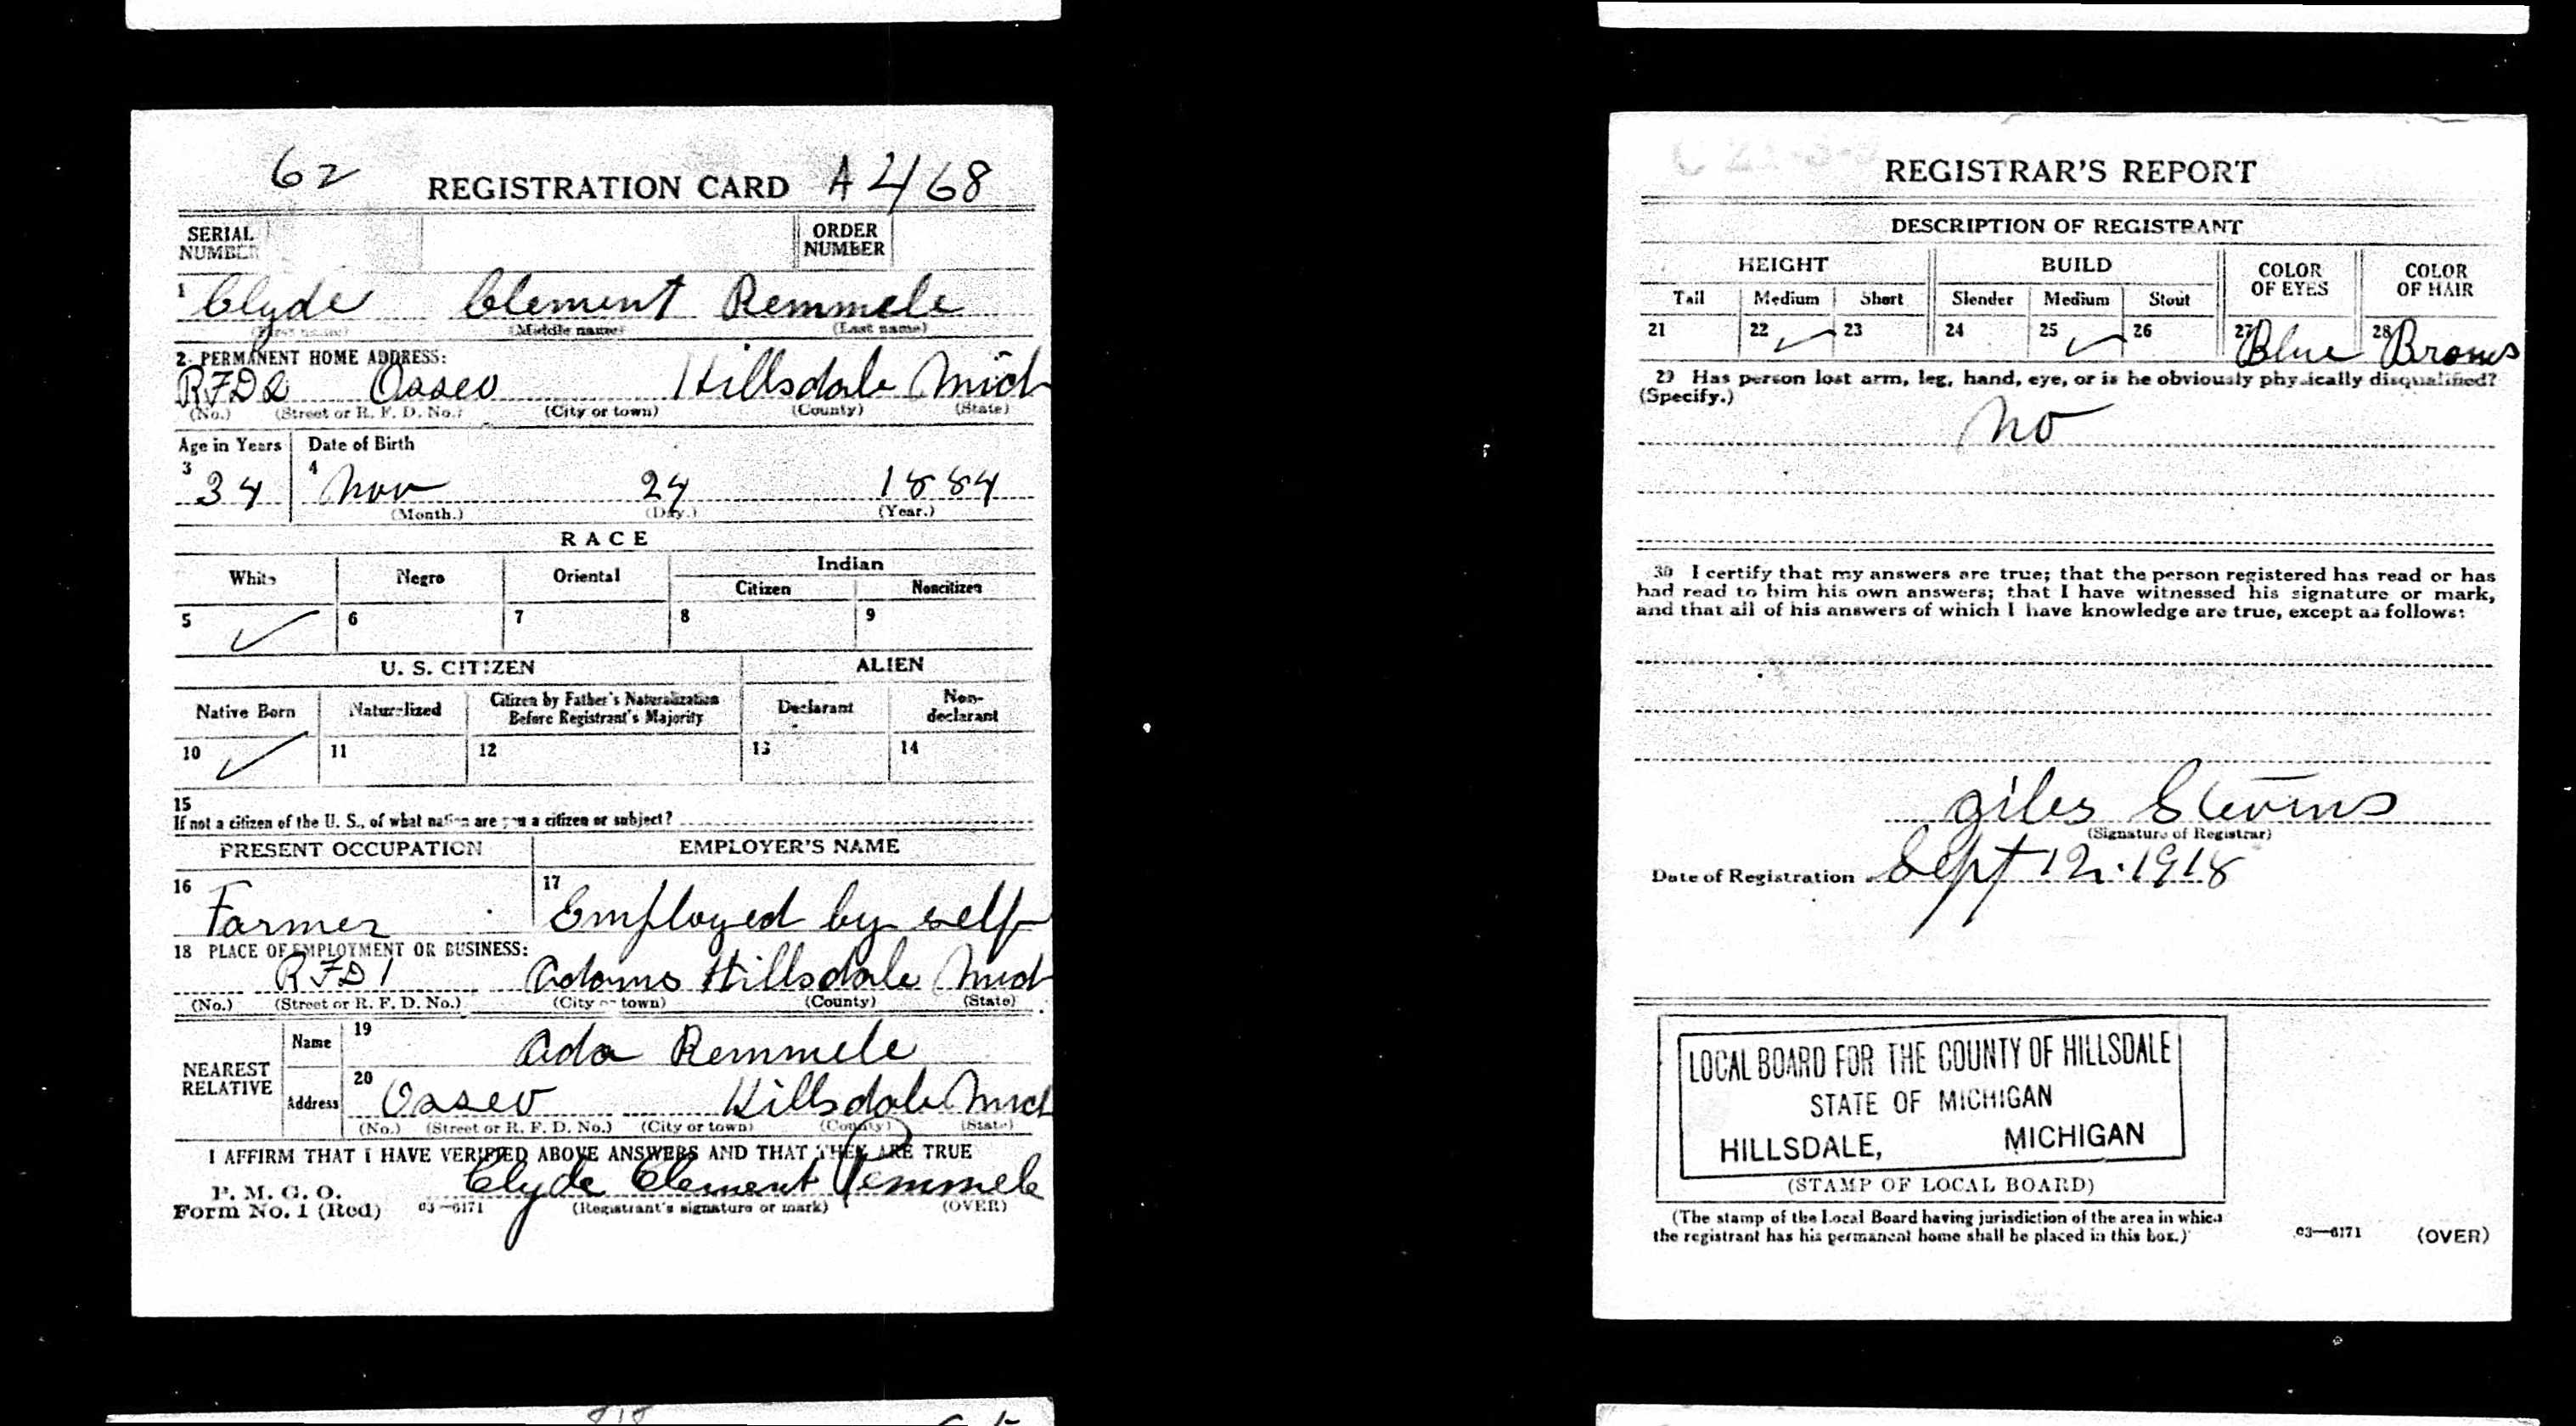 62 REGISTRATION CARD A 2468
SERIAL NUMBER
ORDER NUMBER
1 Clyde Clement Remmele
(First name) (Middle name) (Last name)
2 PERMANENT HOME ADDRESS:
RFD2 Osseo Hillsdale Mich
(No.) (Street or R. F. D. No.) (City or town) (County) (State)
Age in Years Date of Birth
3 34 4 Nov 24 1884
(Month.) (Day.) (Year.)
RACE
White Negro Oriental Indian
Citizen Noncitizen
5 ✓ 6 7 8 9
U. S. CITIZEN ALIEN
Native Born Naturalized Citizen by Father's Naturalization Before Registrant's Majority Declarant Non-declarant
10 ✓ 11 12 13 14
15
If not a citizen of the U. S., of what nation are you a citizen or subject?
PRESENT OCCUPATION EMPLOYER'S NAME
16 Farmer 17 Employed by self
18 PLACE OF EMPLOYMENT OR BUSINESS:
RFD1 Adams Hillsdale Mich
(No.) (Street or R. F. D. No.) (City or town) (County) (State)
NEAREST RELATIVE
Name 19 Ada Remmele
Address 20 Osseo Hillsdale Mich
(No.) (Street or R. F. D. No.) (City or town) (County) (State)
I AFFIRM THAT I HAVE VERIFIED ABOVE ANSWERS AND THAT THEY ARE TRUE
P. M. G. O.
Form No. 1 (Red) 03—6171 Clyde Clement Remmele
(Registrant's signature or mark) (OVER)
REGISTRAR'S REPORT
DESCRIPTION OF REGISTRANT
HEIGHT BUILD COLOR OF EYES COLOR OF HAIR
Tall Medium Short Slender Medium Stout
21 22 ✓ 23 24 25 ✓ 26 27 Blue 28 Brown
29 Has person lost arm, leg, hand, eye, or is he obviously physically disqualified?
(Specify.)
No
30 I certify that my answers are true; that the person registered has read or has
had read to him his own answers; that I have witnessed his signature or mark,
and that all of his answers of which I have knowledge are true, except as follows:
Giles Stevens
(Signature of Registrar)
Date of Registration Sept 12. 1918
LOCAL BOARD FOR THE COUNTY OF HILLSDALE
STATE OF MICHIGAN
HILLSDALE, MICHIGAN
(STAMP OF LOCAL BOARD)
(The stamp of the Local Board having jurisdiction of the area in which
the registrant has his permanent home shall be placed in this box.)
03—6171 (OVER)